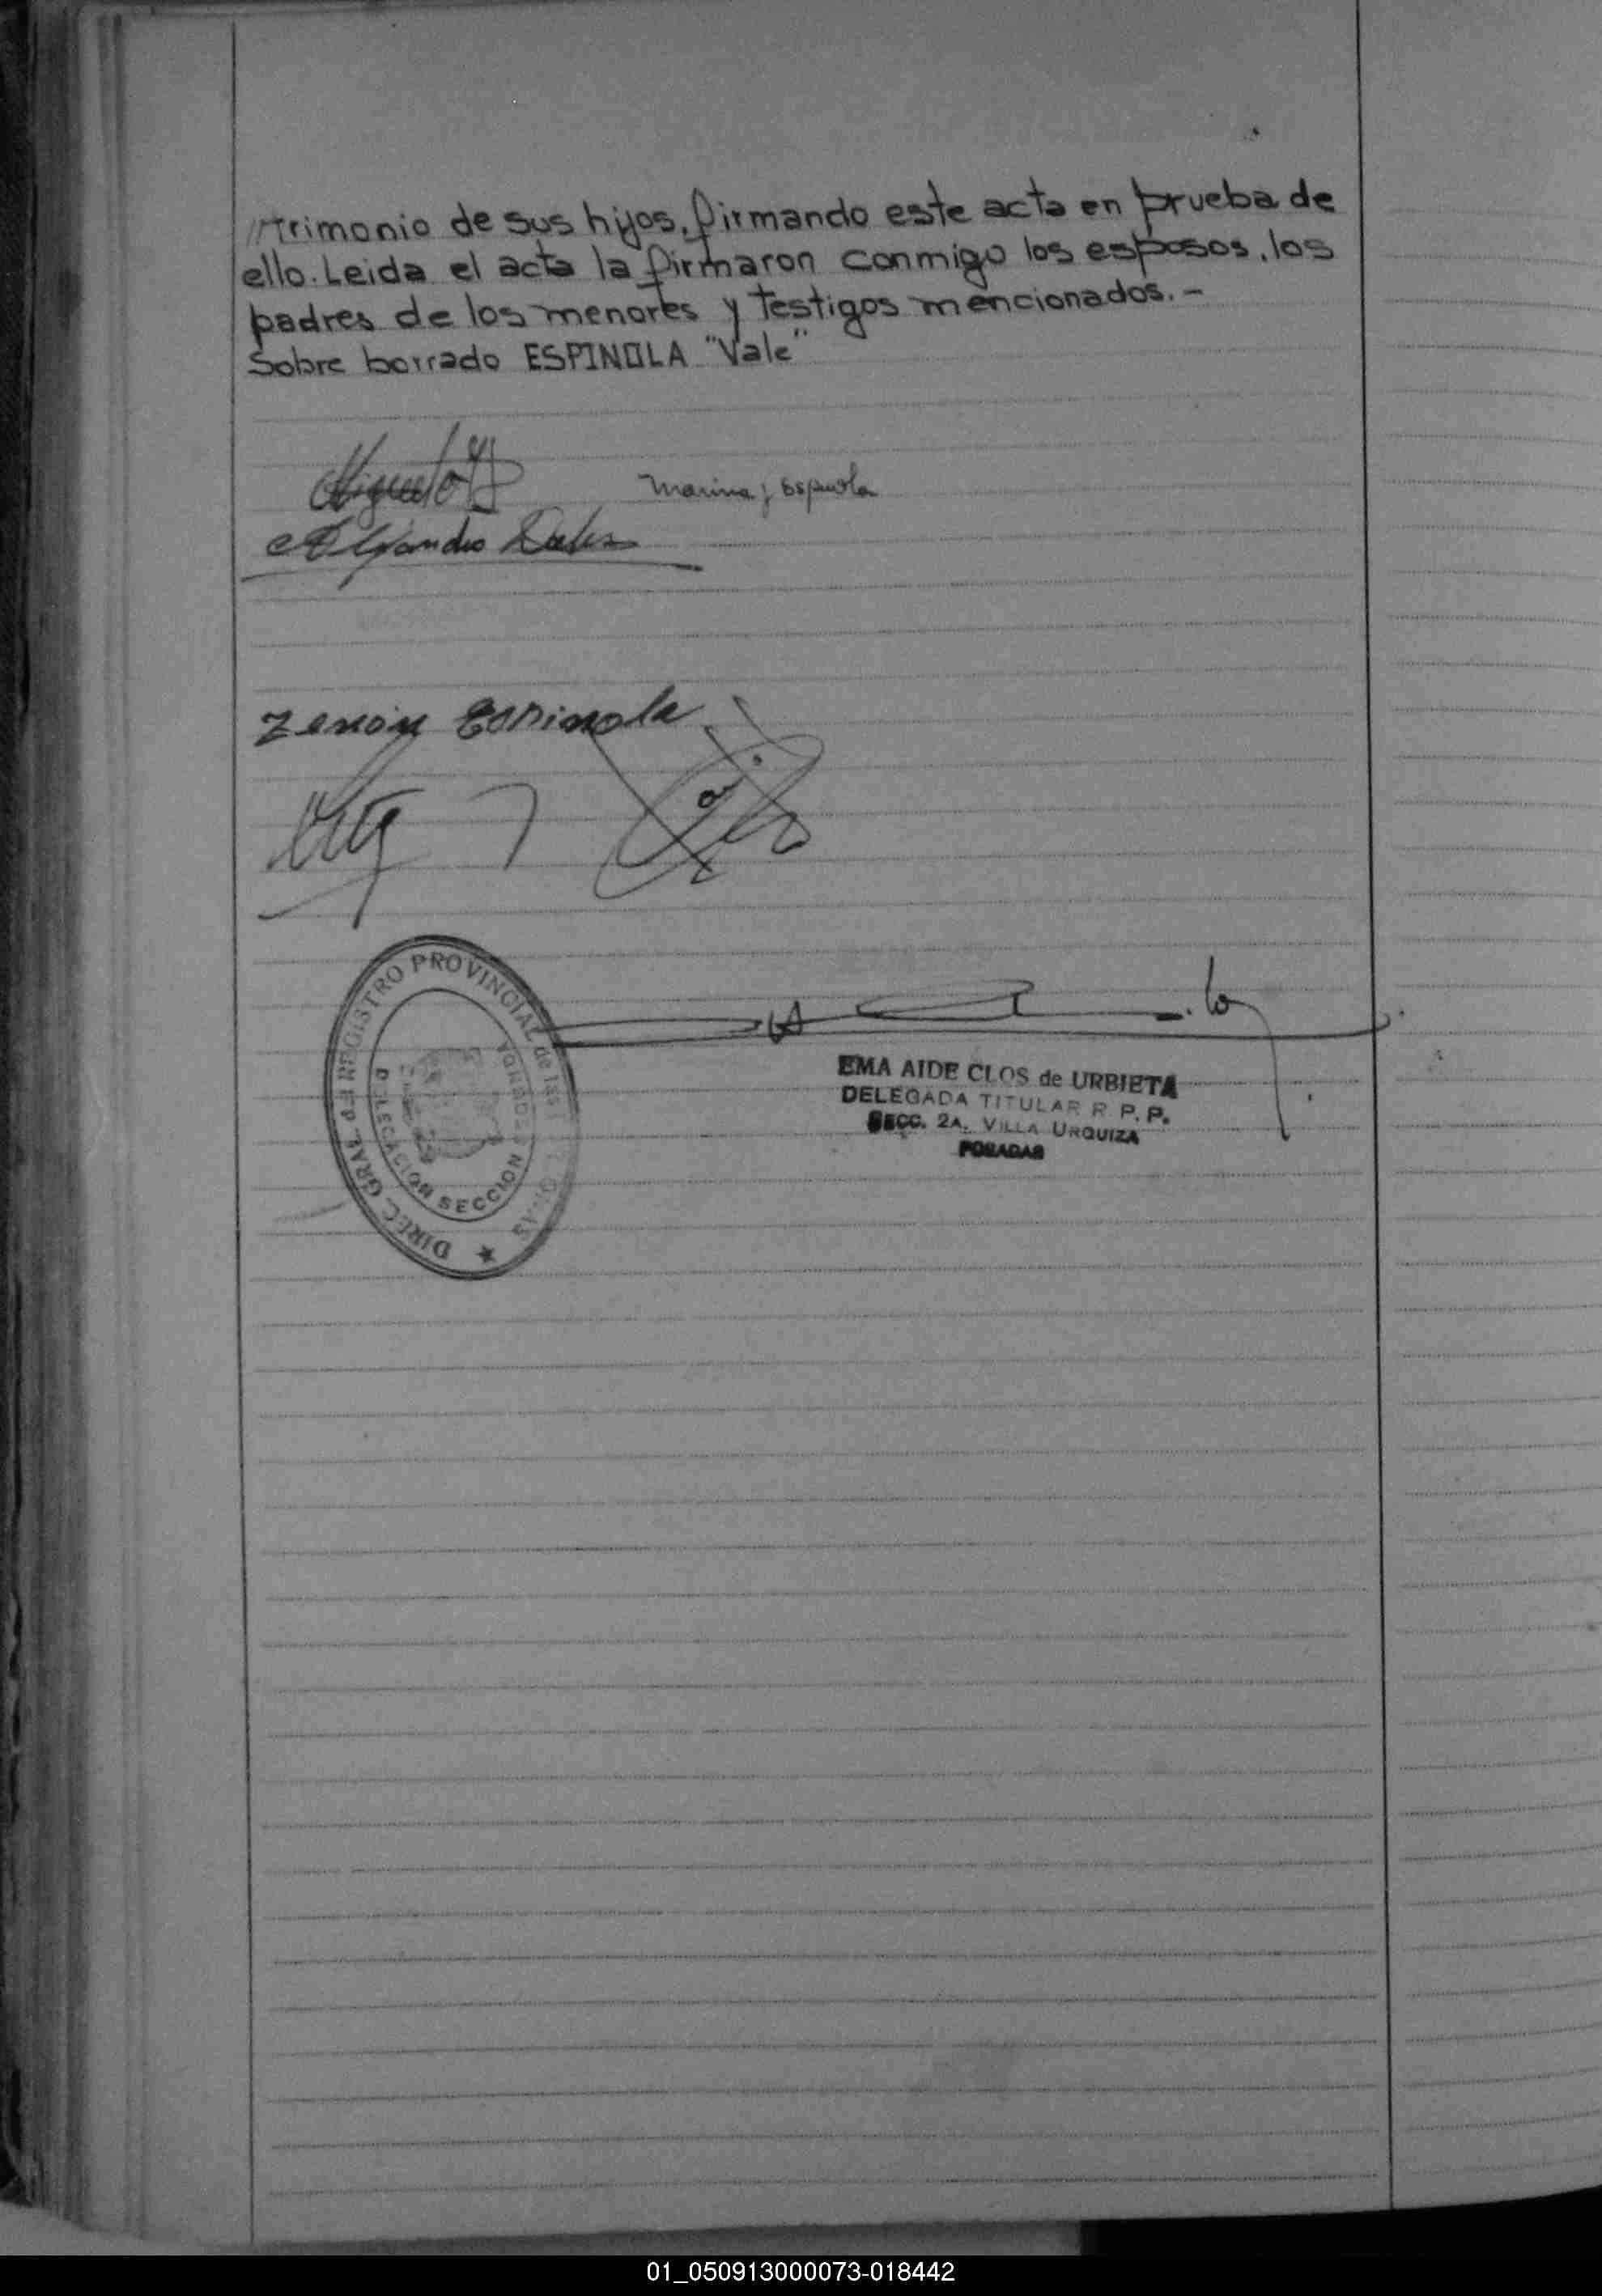 trimonio de sus hijos, firmando este acta en prueba de
ello. Leida el acta la firmaron conmigo los esposos, los
padres de los menores y testigos mencionados. -
Sobre borrado ESPINOLA "Vale"
Marina Espinola
Alejandro
Zenón Espinola
DIREC. GRAL. REGISTRO PROVINCIAL de las
DELEGACION SECCION
EMA AIDE CLOS de URBIETA
DELEGADA TITULAR R. P. P.
SECC. 2A. VILLA URQUIZA
POSADAS
01_050913000073-018442